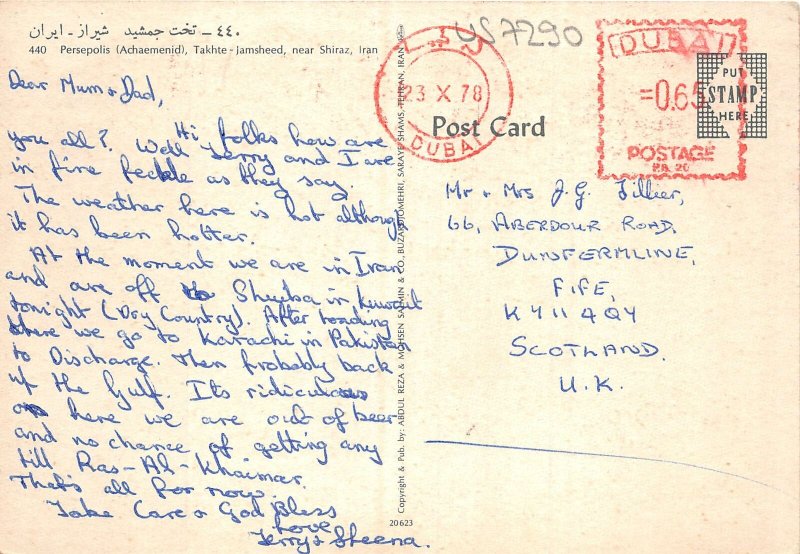 ٤٤٠ – تخت جمشید شیراز - ایران
440 Persepolis (Achaemenid), Takhte-Jamsheed, near Shiraz, Iran
Dear Mum & Dad,
Hi folks how are
you all? Well Jerry and I are
in fine feckle as they say.
The weather here is hot although
it has been hotter.
At the moment we are in Iran
and are off to Shuiba in Kuwait
tonight (Dry Country). After loading
there we go to Karachi in Pakistan
to Discharge. Then probably back
up the Gulf. Its ridiculous
here we are out of beer
and no chance of getting any
till Ras-Al-Khaimar.
That's all for now.
Take Care & God Bless
Love
Jerry & Sheena.
Copyright & Pub. by: ABDUL REZA & MOHSEN SALMIN & CO., BUZARDJOMEHRI, SARAYE SHAMS, TEHRAN, IRAN
20623
US7290
دبي
23 X 78
DUBAI
Post Card
DUBAI
=0.65
POSTAGE
P.B. 20
PUT
STAMP
HERE
Mr & Mrs J.G. Tillier,
66, ABERDOUR ROAD,
DUNFERMLINE,
FIFE,
KY11 4QY
SCOTLAND.
U.K.